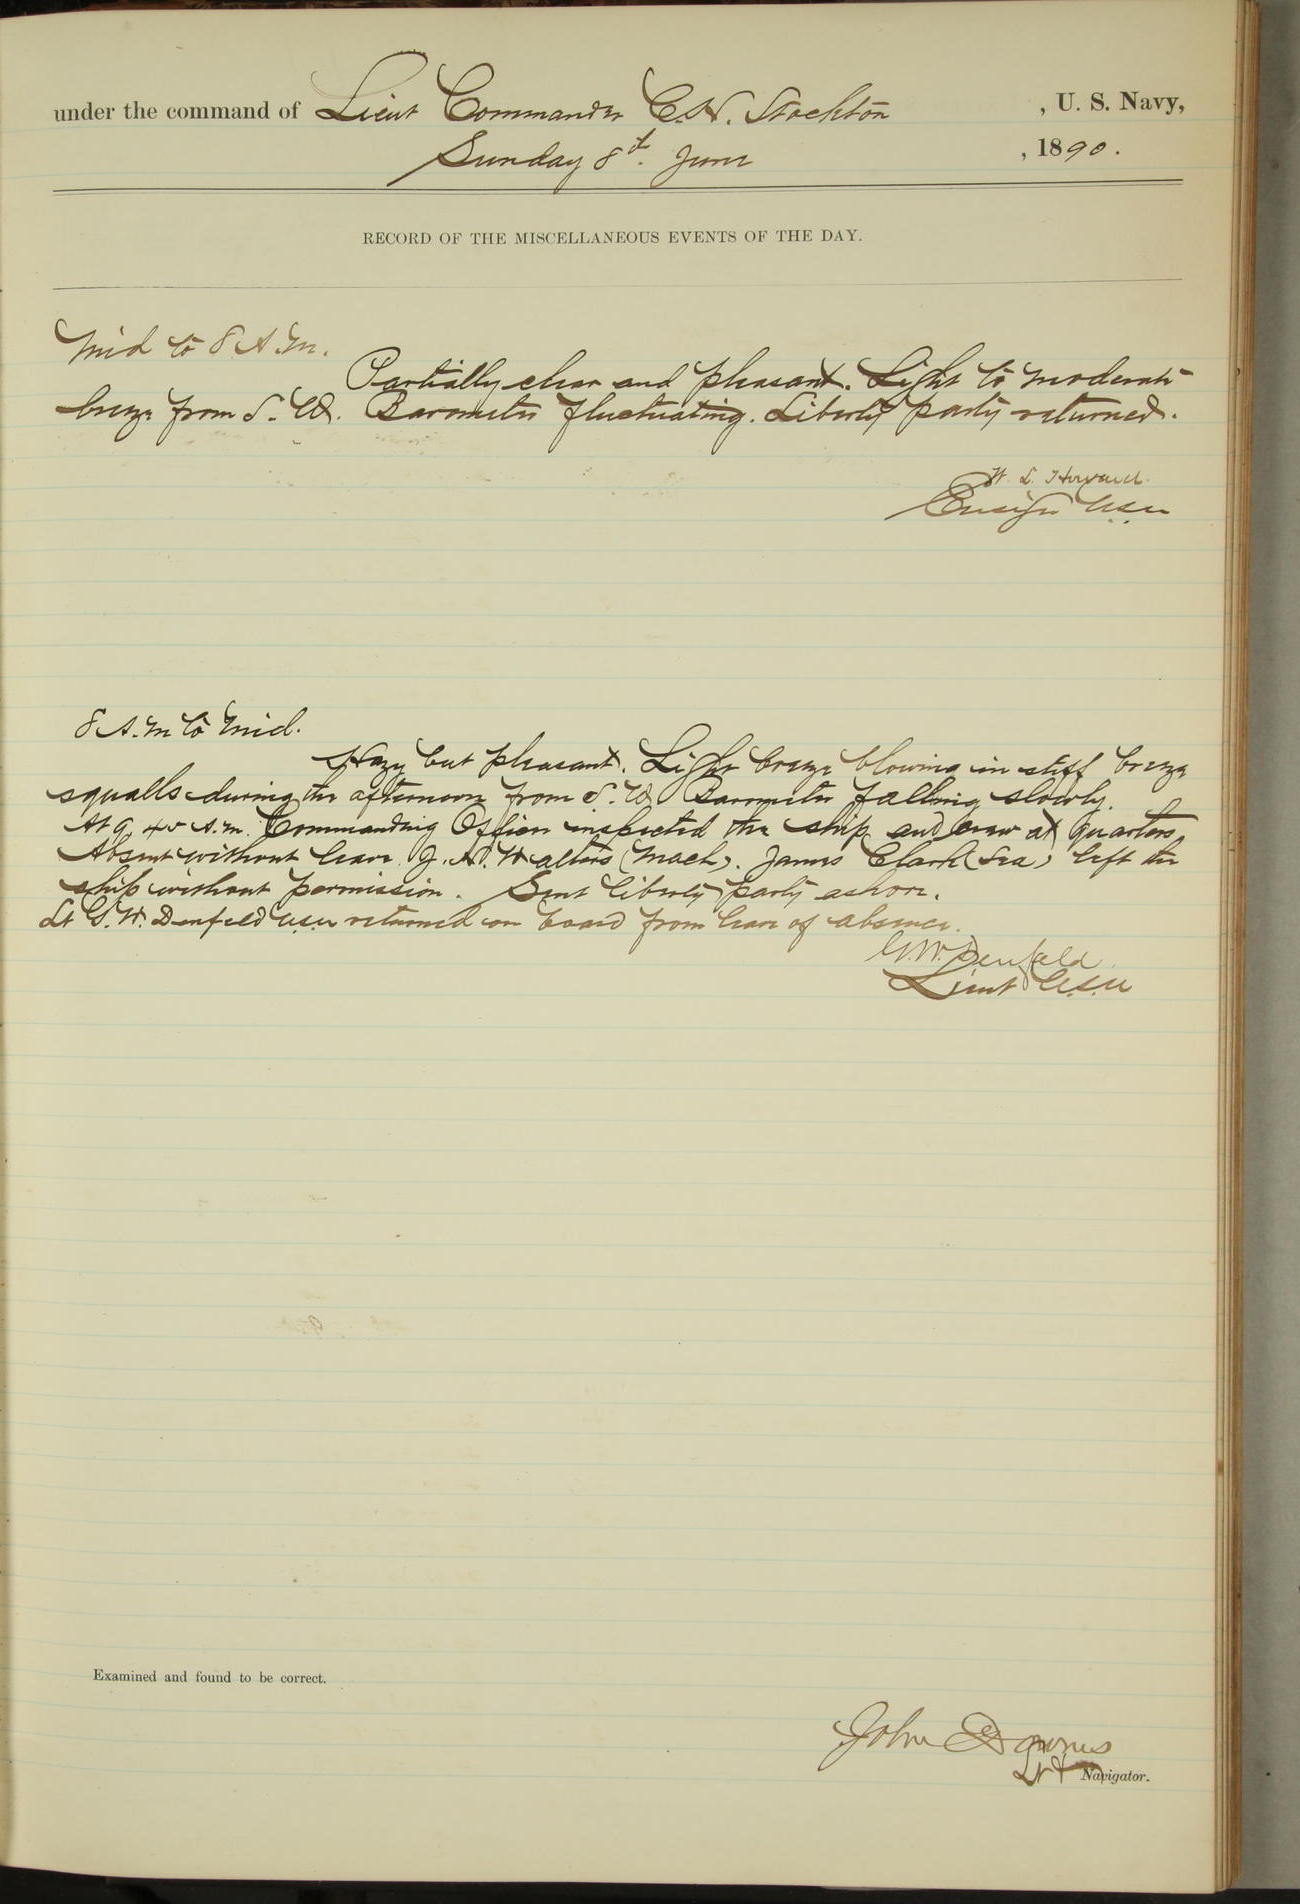 under the command of Lieut Commander C.H. Stockton , U. S. Navy,
Sunday 8th June , 1890.
RECORD OF THE MISCELLANEOUS EVENTS OF THE DAY.
Mid to 8 A.M.
Partially clear and pleasant. Light to moderate
breeze from S. W. Barometer fluctuating. Liberty party returned.
W. L. Howard
Ensign USN
8 A.M to Mid.
Hazy but pleasant. Light breeze blowing in stiff breeze
squalls during the afternoon from S. W. Barometer falling slowly.
At 9.45 A.M. Commanding Officer inspected the ship and crew at quarters.
Absent without leave J. H. Walters (Mach). James Clark (Sea) left the
ship without permission. Sent liberty party ashore.
Lt G. W. Denfeld USN returned on board from leave of absence.
G. W. Denfeld
Lieut USN
Examined and found to be correct.
John Downes
Lt & Navigator.